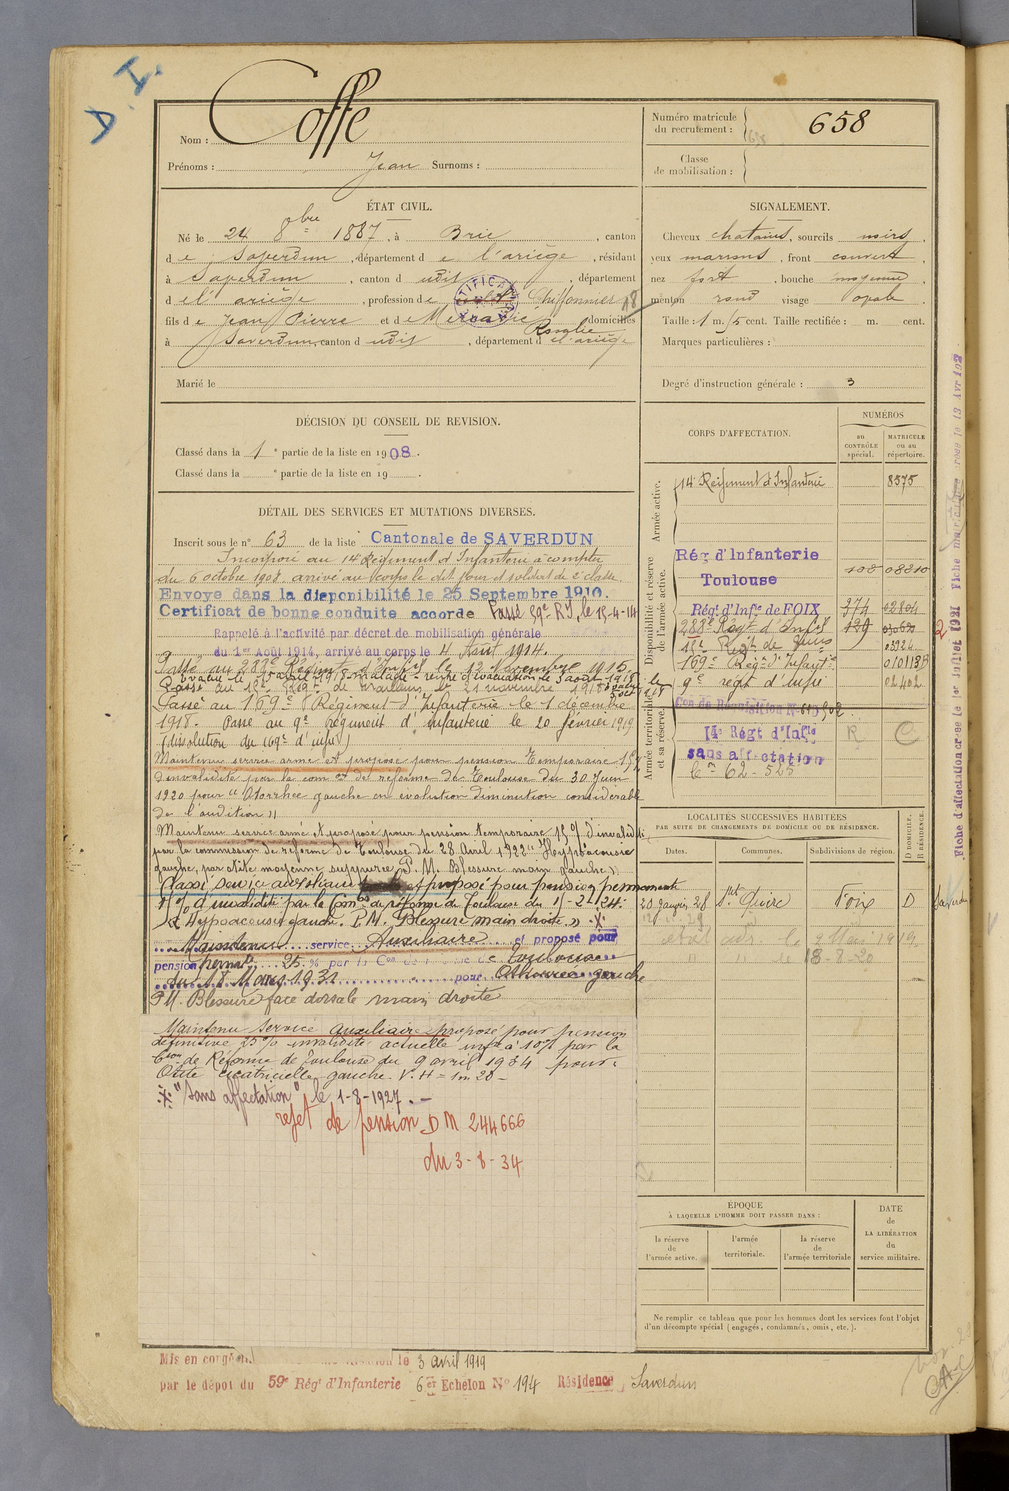 D. I.
Nom : Coffe
Prénoms : Jean Surnoms :
Numéro matricule du recrutement : 658
Classe de mobilisation :
ÉTAT CIVIL.
Né le 24 8bre 1887, à Brie, canton
de Saverdun, département de l'ariège, résidant
à Saverdun, canton d udit, département
d el' ariège, profession de Chiffonnier
fils de Jean Pierre et de domiciliés
Rosalie
à Saverdun, canton d udit, département d el'ariège
Marié le
SIGNALEMENT.
Cheveux chatains, sourcils noirs,
yeux marrons, front couvert,
nez fort, bouche moyenne
menton rond visage opale
Taille : 1 m. cent. Taille rectifiée : m. cent.
Marques particulières :
Degré d'instruction générale : 3
DÉCISION DU CONSEIL DE REVISION.
Classé dans la 1e partie de la liste en 1908.
Classé dans la e partie de la liste en 19
DÉTAIL DES SERVICES ET MUTATIONS DIVERSES.
Inscrit sous le n° 63 de la liste Cantonale de SAVERDUN
Incorporé au 14e Régiment d'Infanterie à compter
du 6 octobre 1908. arrivé au corps le dit jour et soldat de 2e classe.
Envoyé dans la disponibilité le 25 Septembre 1910.
Certificat de bonne conduite accordé Passé 59e R.I. le 15-4-14
Rappelé à l'activité par décret de mobilisation générale
du 1er Août 1914, arrivé au corps le 4 Août 1914.
Passé au 283e Régiment d'Infie le 12 Novembre 1915.
Évacué le 15 avril 1918 malade - rentré d'évacuation le 3 août 1918
Passé au 15e Régt de le 21 novembre 1918
Passé au 169e Régiment d'Infanterie le 1 décembre
1918. Passé au 9e régiment d'infanterie le 20 février 1919
(dissolution du 169e d'infie)
Maintenu service armé et proposé pour pension temporaire 15%
d'invalidité par la com on de réforme de Toulouse du 30 Juin
1920 pour "Otorrhée gauche en évolution diminution considérable
de l'audition"
Maintenu service armé et proposé pour pension temporaire 15% d'invalidité
par la commission de réforme de Toulouse du 28 Avril 1922 "Hypoacousie
gauche, par otite moyenne suppurée P.M. Blessure main gauche"
Classé service auxiliaire et proposé pour pension permanente
% d'invalidité par la Comon de réforme de Toulouse du
"Hypoacousie gauche. P.M. Blessure main droite."
Maintenu service Auxiliaire et proposé pour
pension permte 25 % par la Con de réforme de Toulouse
du Mars 1931 pour Othorrée gauche
P.M. Blessure face dorsale main droite
Maintenu service auxiliaire proposé pour pension
définitive 25% invalidité actuelle infre à 10% par la
Cson de Réforme de Toulouse du 9 avril 1934 pour :
Otite cicatricielle gauche. V.H = 1m 20 -
"Sans affectation" le 1-8-1927. -
rejet de pension DM 244666
du 3-8-34
CORPS D'AFFECTATION.
NUMÉROS
au CONTRÔLE spécial.
MATRICULE ou au répertoire.
Armée active.
14e Régiment d'Infanterie 8575
Disponibilité et réserve de l'armée active.
Rég d'Infanterie
Toulouse 108 08810
Régt d'Infie de FOIX 374 02804
283e Régt d'Infie 139
03924
169e Régt d'Infante 010113
9e regit d'infie 02402
Armée territoriale et sa réserve.
Con de Réquisition
14e Régt d'Infie R C
sans affectation
LOCALITÉS SUCCESSIVES HABITÉES
PAR SUITE DE CHANGEMENTS DE DOMICILE OU DE RÉSIDENCE.
Dates. Communes. Subdivisions de région. D DOMICILE. R RÉSIDENCE.
20 Janvier 28 St Quirc Foix D
ÉPOQUE
À LAQUELLE L'HOMME DOIT PASSER DANS :
la réserve de l'armée active.
l'armée territoriale.
la réserve de l'armée territoriale
DATE de LA LIBÉRATION du service militaire.
Ne remplir ce tableau que pour les hommes dont les services font l'objet
d'un décompte spécial (engagés, condamnés, omis, etc.).
Mis en congé le 3 avril 1919
par le dépôt du 59e Régt d'Infanterie 6e Echelon N° 194 Résidence, Saverdun
Fiche d'affectation créée le 1er Juillet 1921